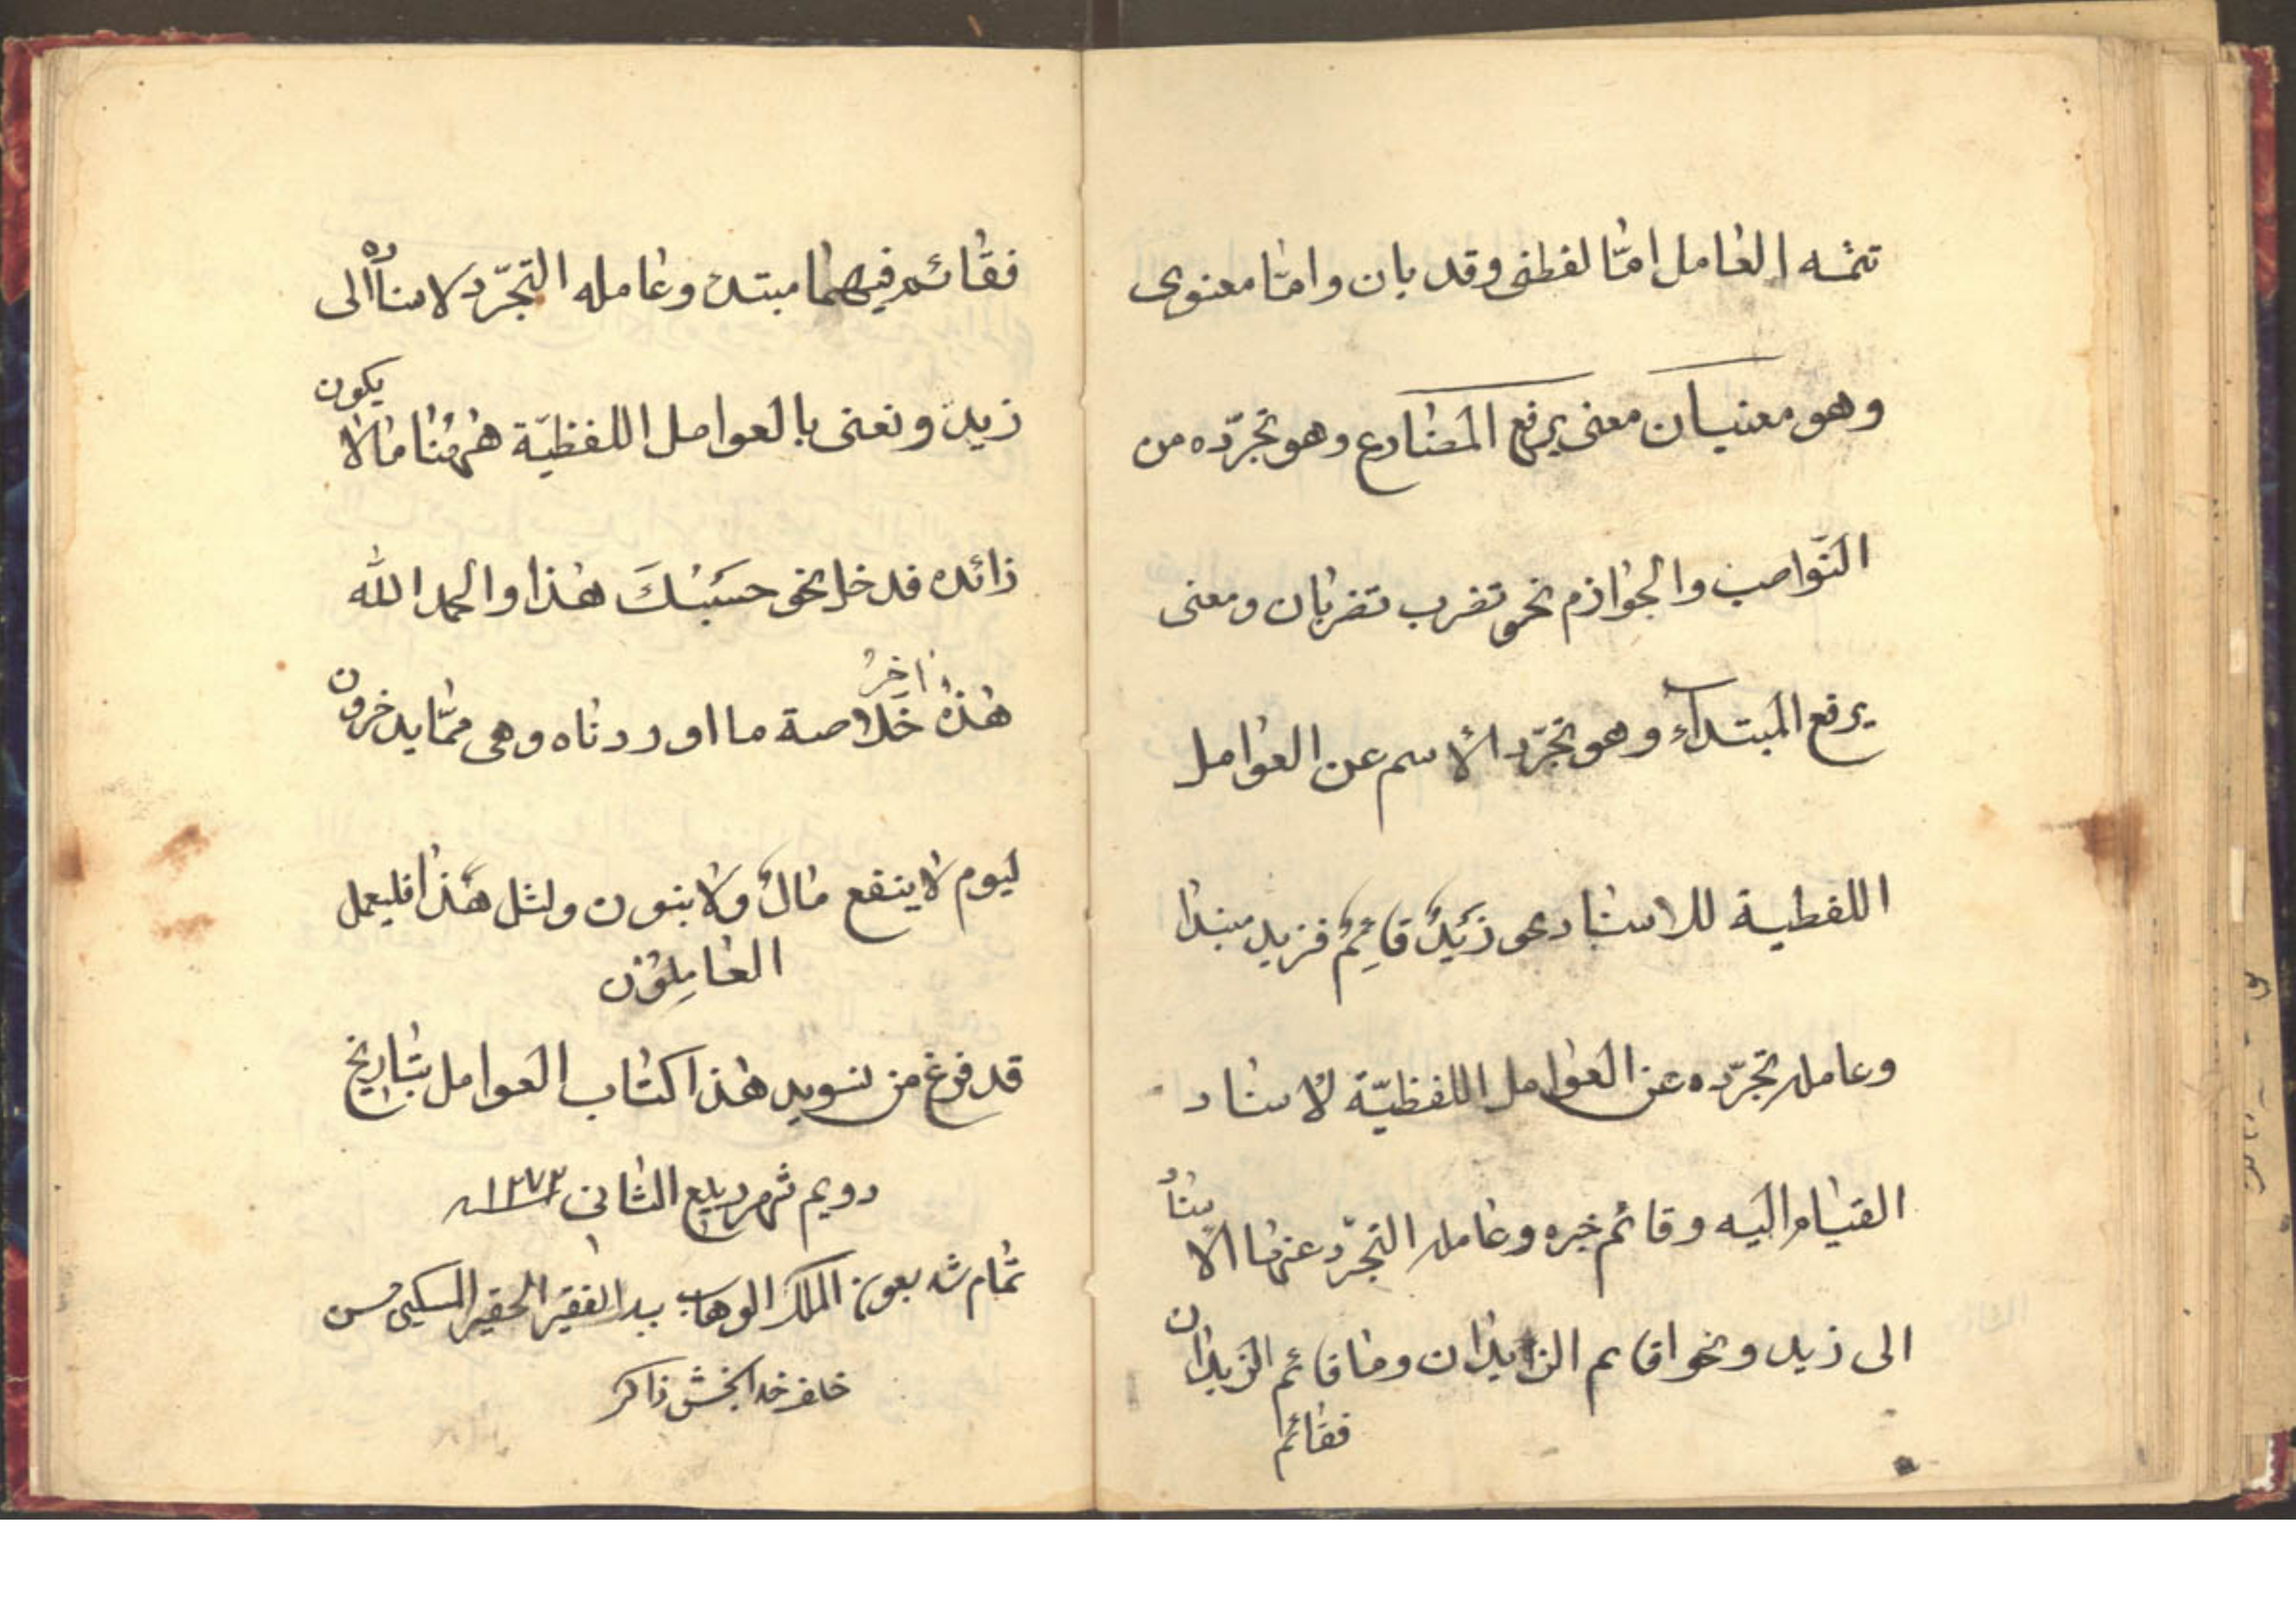 تتمه العامل امّا لفظى وقد بان وامّا معنوى
وهو معنيان معنى يرفع المضارع وهو تجرّده من
النّواصب والجوازم نحو تضرب تضربان ومعنى
يرفع المبتداء وهو تجرّد الأسم عن العوامل
اللفظية للاسناد نحو زَيدٌ قائِمٌ فزيد مبتدا
وعامله تجرّده عن العوامل اللفظيّة لأسناد
القيام اليه وقائم خبره وعامله التجرّد عنها الاسناد
الى زيد ونحو اقائم الزايدان وما قائم الزيدان
فقائم
فقائم فيهما مبتدء وعامله التجرّد لاسناده الى
زيد ونعنى بالعوامل اللفظيّة ههنا مالا يكون
زائده فدخل نحو حَسبُكَ هذا والحمد الله
اخرُ
هذه خلاصة ما اوردناه وهى ممّا يدخرون
ليوم لا ينفع مالٌ ولا بنون ولمثل هذا فليعمل
العامِلوُن
قد فرغ من تسويد هذا كتاب العوامل بتاريخ
دويم شهر ربيع الثانى ١٢٧٣
تمام شد بعون الملك الوهاب بيد الفقير الحقير المسكين حسن
خلف خدابخش ذاكر